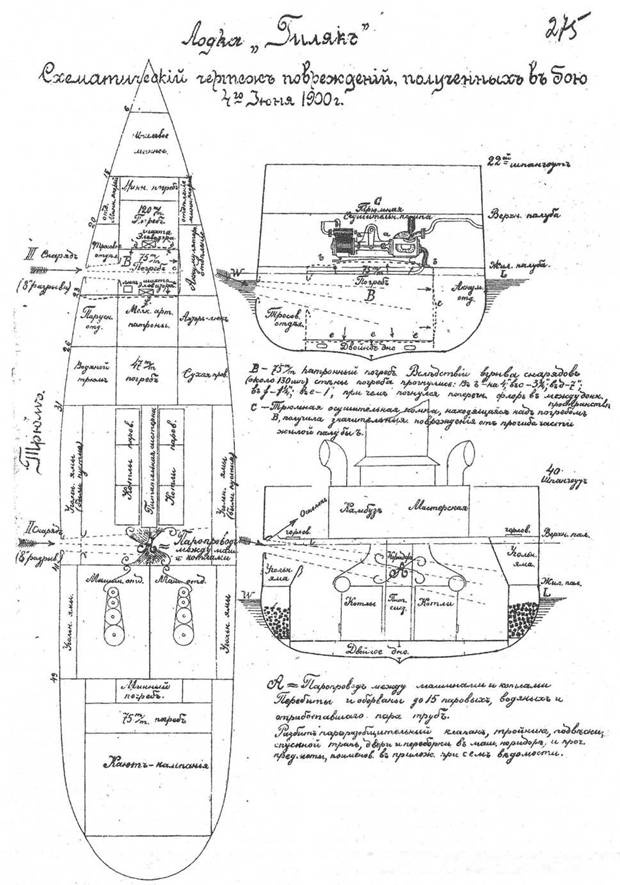 275
Лодка „Гилякъ"
Схематическій чертежъ поврежденій, полученныхъ въ бою
4го Іюня 1900 г.
6
18
20
23
26
31
41
49
Минн. погребъ
120 m/m
Погребъ
В
75 m/m
Погребъ
III Снарядъ
(8" разрывн.)
Парусн.
отд.
Мелк. арт.
патроны.
Водяной
трюмъ
47 m/m
погребъ
Сухая пров.
Трюмъ.
Угольн. ямы
Котлы паров.
Котлы паров.
Угольн. ямы
II Снарядъ
(8" разрыв.)
А
= Паропроводъ
между маш.
и котлами
Машин. отд.
Маш. отд.
Угольн. ямы
Угольн. ямы
Минный
погребъ.
75 m/m. погребъ
Каютъ-кампанія
22ой шпангоутъ
С
Трюмная
Осушительн. помпа
Верхн. палуба
Жил. палуба.
L
W
75 m/m
Погребъ
В
Аккум.
отд.
Тросов.
отдѣл.
Двойное дно
В – 75 m/m патронный погребъ. Вслѣдствіи взрыва снарядовъ
(около 130 шт) стѣны погреба прогнулись:
при чемъ погнулся попереч. флоръ въ междудонн.
пространствѣ.
С – Трюмная осушительная помпа, находящаяся надъ погребомъ
В, получила значительныя поврежденія отъ прогиба части
жилой палубы ъ.
40.
Шпангоут
Осколки
Камбузъ
Мастерская
горлов.
горлов.
Верхн. пал.
Угольн.
яма
Угольн.
яма
А
Жил. пал.
W
L
Котлы
Котлы
Двойное дно.
А = Паропроводъ между машинами и котлами
Перебиты и оборваны до 15 паровыхъ, водяныхъ и
отработавшаго пара трубъ.
Разбитъ пароразобщительный клапанъ, тройникъ, подвѣски,
спускной трапъ, двери и переборки въ маш. коридорѣ, и проч.
предметы, поименов. въ прилож. при семъ вѣдомости.